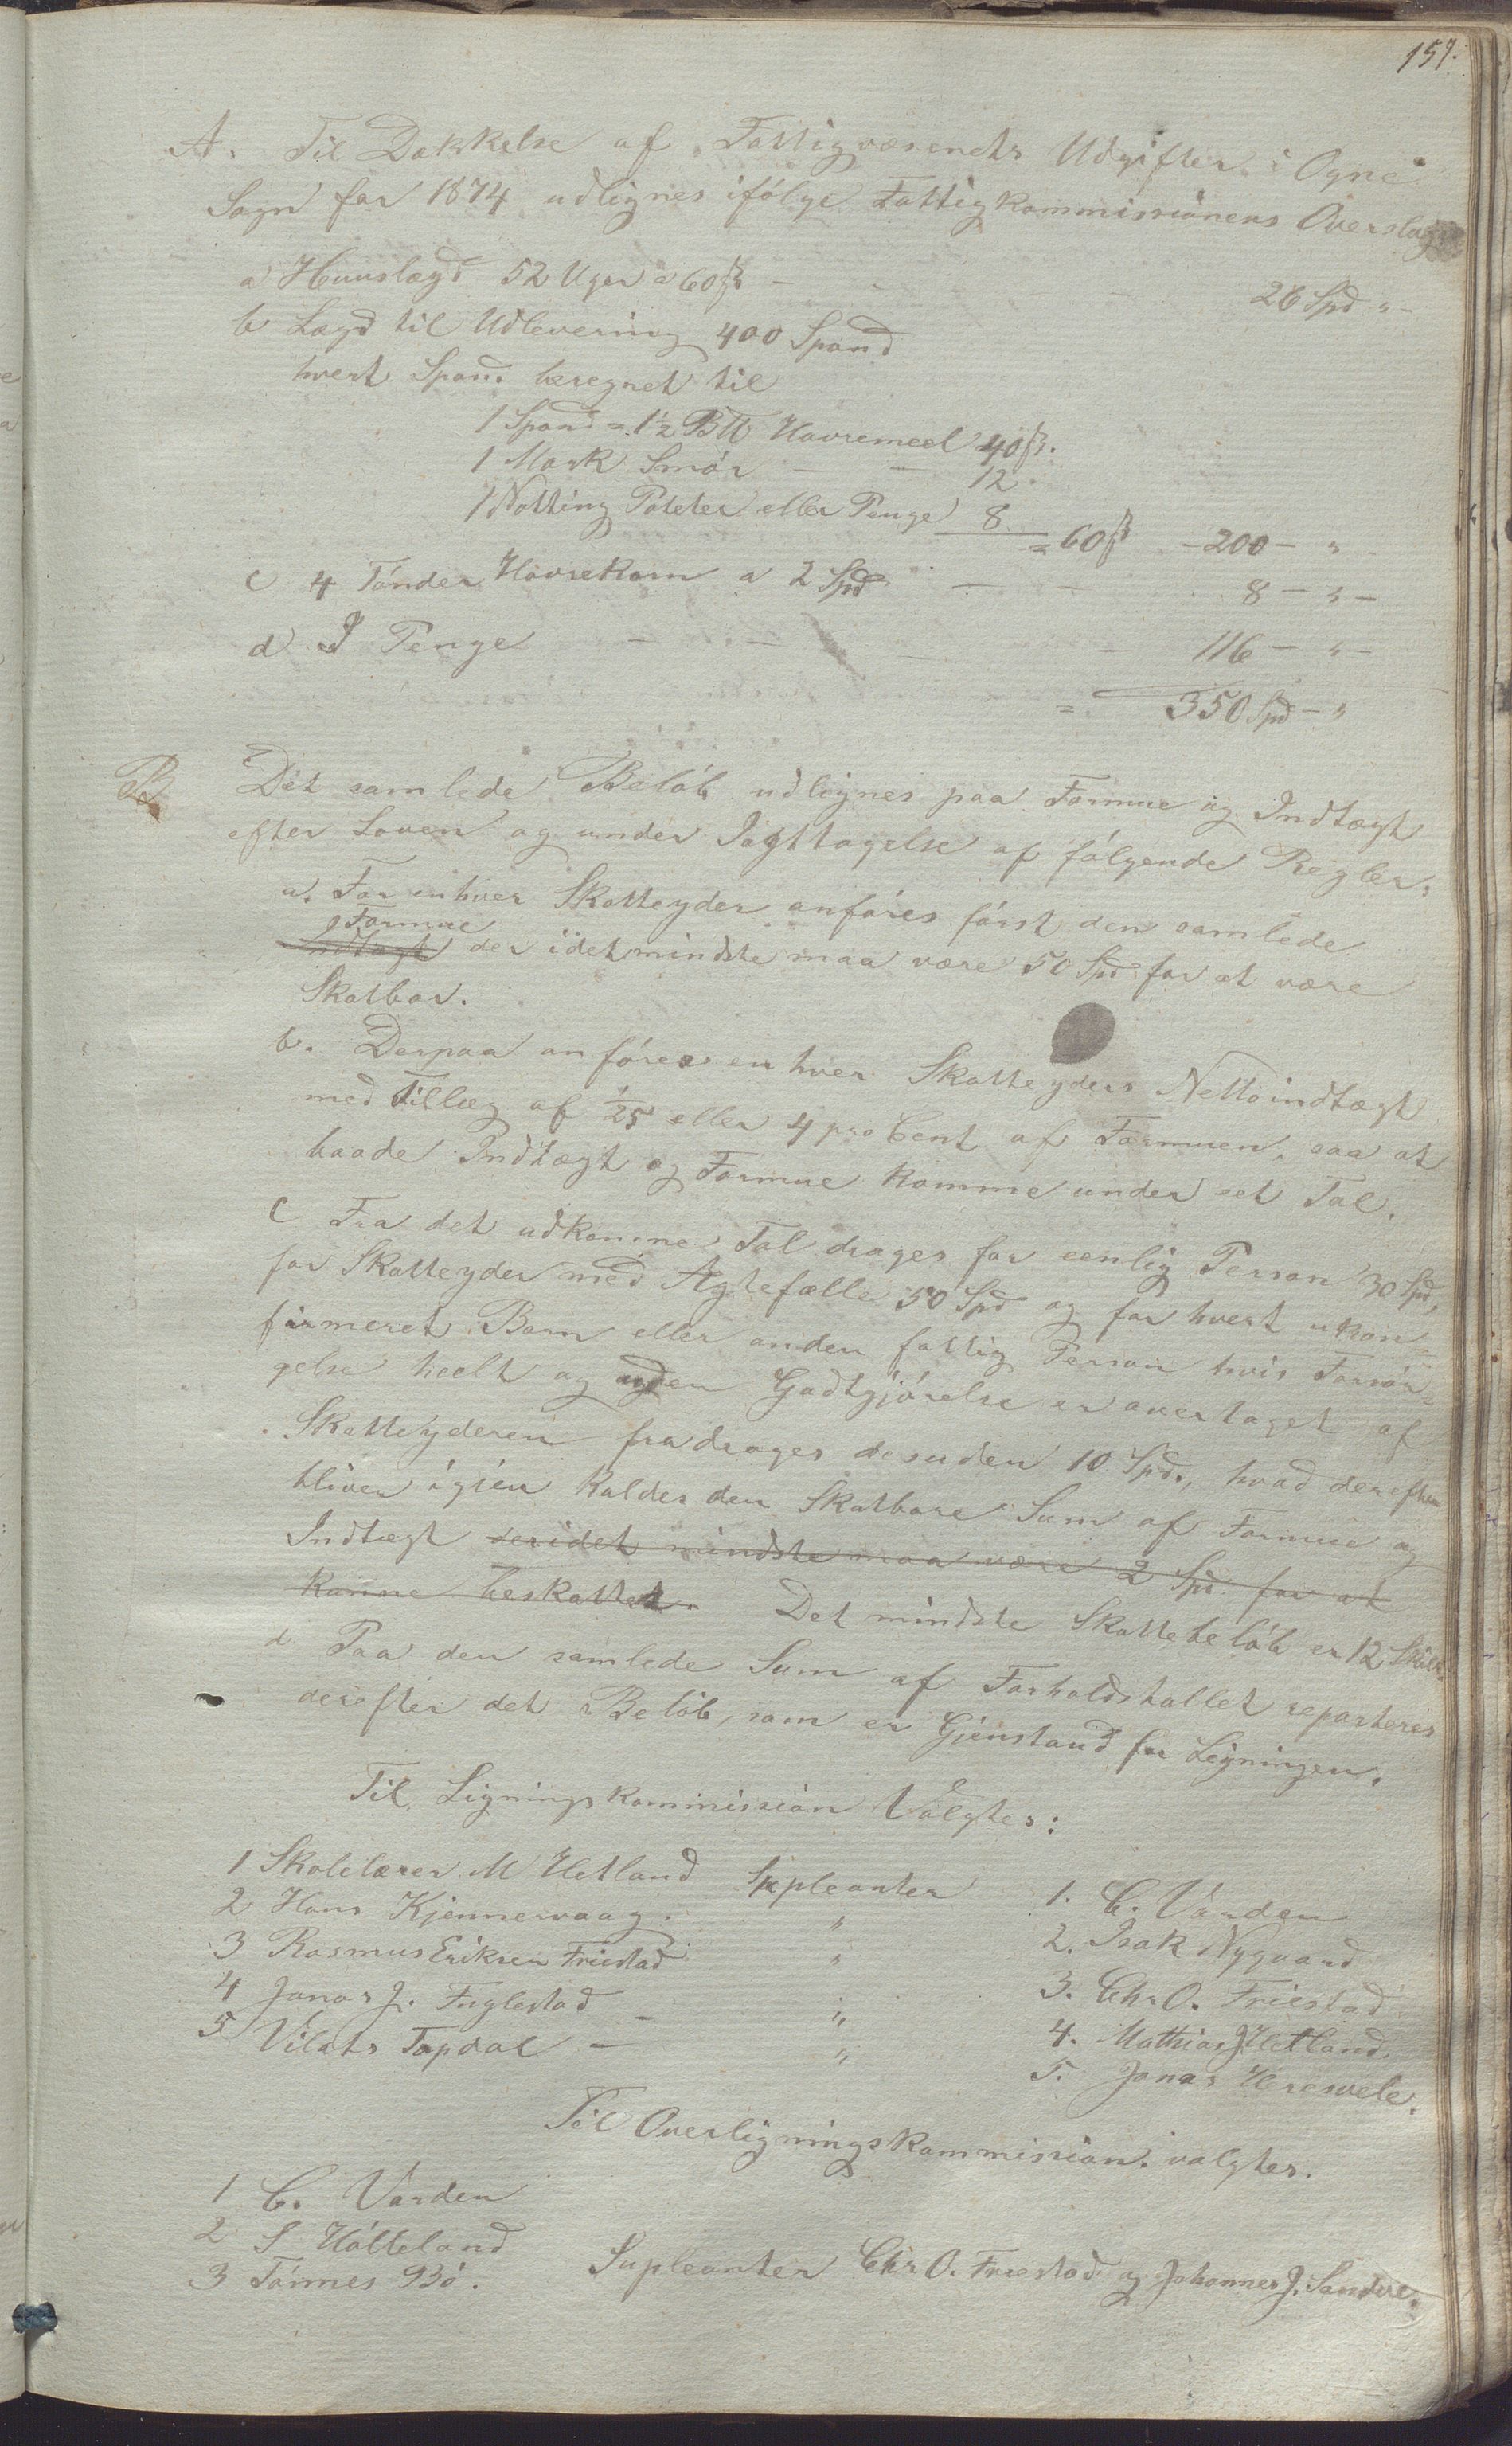 159.
A. Til Dækkelse af Fattigvæsenets Udgifter i Ogne
Sogn for 1874 udlignes ifölge Fattigkommissionens Overslag:
a Huuslægd 52 Uger a 60 ß - 26 Spd " -
b Lægd til Udlevering 400 Spand
hvert Spand beregnet til
1 Spand = 1½ B℔ Havremeel 40 ß.
1 Mark Smör - - 12.
1 Notting Poteter eller Penge 8 = 60 ß - 200 - "
c 4 Tönder Havrekorn a 2 Spd - - 8 - " -
d I Penge - - - - 116 - " -
= 350 Spd - "
B Det samlede Belöb udlignes paa Formue og Indtægt
efter Loven og under Iagttagelse af fölgende Regler:
a. For enhver Skatteyder anföres först den samlede
Formue
Indtægt der i det mindste maa være 50 Spd for at være
Skatbar.
b. Derpaa anföres enhver Skatteyders Nettoindtægt
med Tillæg af 1/25 eller 4 pro Cent af Formuen, saa at
baade Indtægt og Formue komme under et Tal.
C Fra det udkomne Tal drages for eenlig Person 30 Spd,
for Skatteyder med Ægtefælle 50 Spd og for hvert ukon=
firmeret Barn eller anden fattig Person hvis Forsör=
gelse heelt og uden Godtgjörelse er overtaget af
Skatteyderen fradrages desuden 10 Spd., hvad derefter
bliver igien kaldes den Skatbare Sum af Formue og
Indtægt der idet mindste maa være 2 Spd for at
kunne beskattes. Det mindste Skattebelöb er 12 Skill.
d Paa den samlede Sum af Forholdstallet reparteres
derefter det Belöb, som er Gjenstand for Ligningen.
Til Ligningskommission Valgtes:
1 Skolelærer M Hetland Supleanter 1. C. Varden
2 Hans Kjennervaag. " 2. Isak Nygaard
3 Rasmus Eriksen Friestad " 3. Chr. O. Friestad
4 Jonas J. Fuglestad - " 4. Mathias J Hetland.
5 Vilats Topdal - " 5. Jonas Hresvele.
Til Overligningskommission valgtes.
1 C. Varden
2 S Hölleland
3 Tönnes Bö. Supleanter Chr O. Friestad og Johannes J. Sandve.